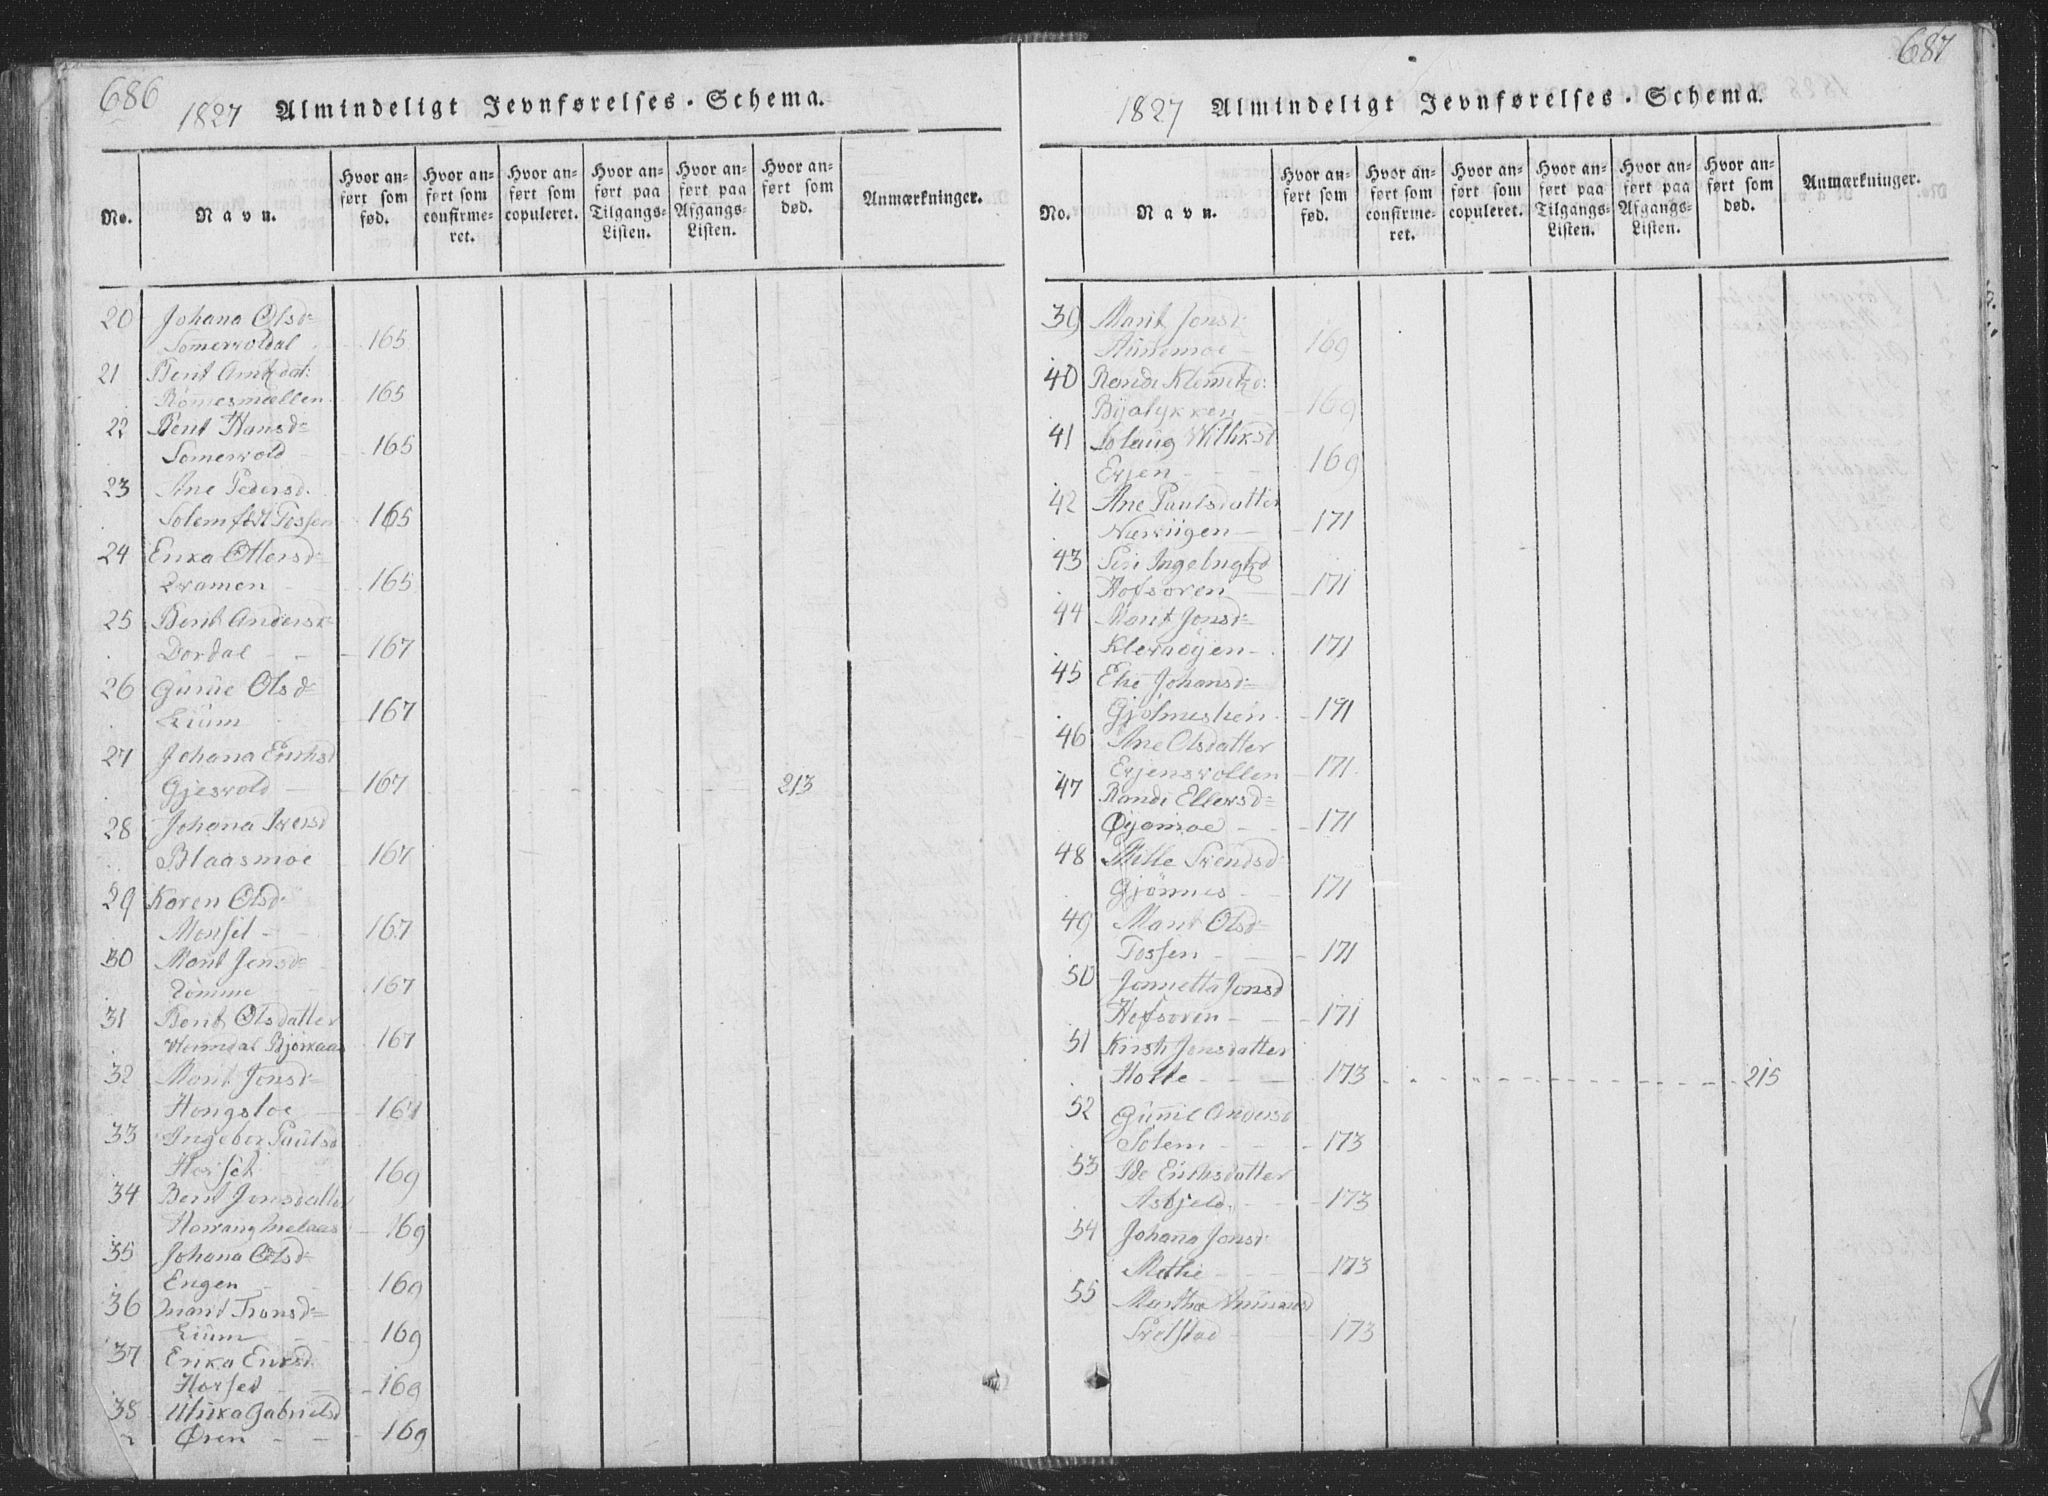 686
1827 Almindeligt Jevnførelses-Schema.
No.
Navn.
Hvor anført som fød.
Hvor anført som confirmeret.
Hvor anført som copuleret.
Hvor anført paa Tilgangs-Listen.
Hvor anført paa Afgangs-Listen.
Hvor anført som død.
Anmærkninger.
20 Johana Olsd=
Somerwoldal 165
21 Berit
165
22 Berit Hansd=
Somerwold 165
23 Ane Pedersd.
Solem Tossen 165
24 Erika Ottersd=
Kramen 165
25 Berit Andersd=
Dordal 167
26 Gunie Olsd=
Lium 167
27 Johana Erichsd
Gjesvold 167 213
28 Johana Iversd
Blaasmoe 167
29 Karen Olsd:
Monset 167
30 Marit Jensd=
Römme 167
31 Berit Olsdatter
Bjørkaas 167
32 Marit Jonsd=
Hongsloe 167
33 Ingebor Paulsd
Horset 169
34 Berit Jonsdatter
169
35 Johana Olsd=
Engen 169
36 Marit Tronsd=
Lium 169
37 Erika Eriksd.
Horset 169
38 Ulrika Gabrielsd
Øren 169
687
1827 Almindeligt Jevnførelses-Schema.
No.
Navn.
Hvor anført som fød.
Hvor anført som confirmeret.
Hvor anført som copuleret.
Hvor anført paa Tilgangs-Listen.
Hvor anført paa Afgangs-Listen.
Hvor anført som død.
Anmærkninger.
39 Marit Jonsd:
Aunemoe 169
40 Randi Klemetzd:
Byalykken 169
41 Solaug
Evjen 169
42 Ane Paulsdatter
171
43 Siri
Hofsoren 171
44 Marit Jonsd=
Klevaøyen 171
45 Else Johansd=
Gjølmeslien 171
46 Ane Olsdatter
Evjensvollen 171
47 Randi Ellevsd=
Øyamoe 171
48 Mille Svendsd
Gjönnes 171
49 Marit Olsd=
Tossen 171
50 Jonnetta Jonsd
Hofsoren 171
51 Kirsti Jonsdatter
Holte 173 215
52 Gunnil Andersd
Solem 173
53 Ide Erichsdatter
Asbjeld 173
54 Johana Jonsd=
173
55 Martha
173